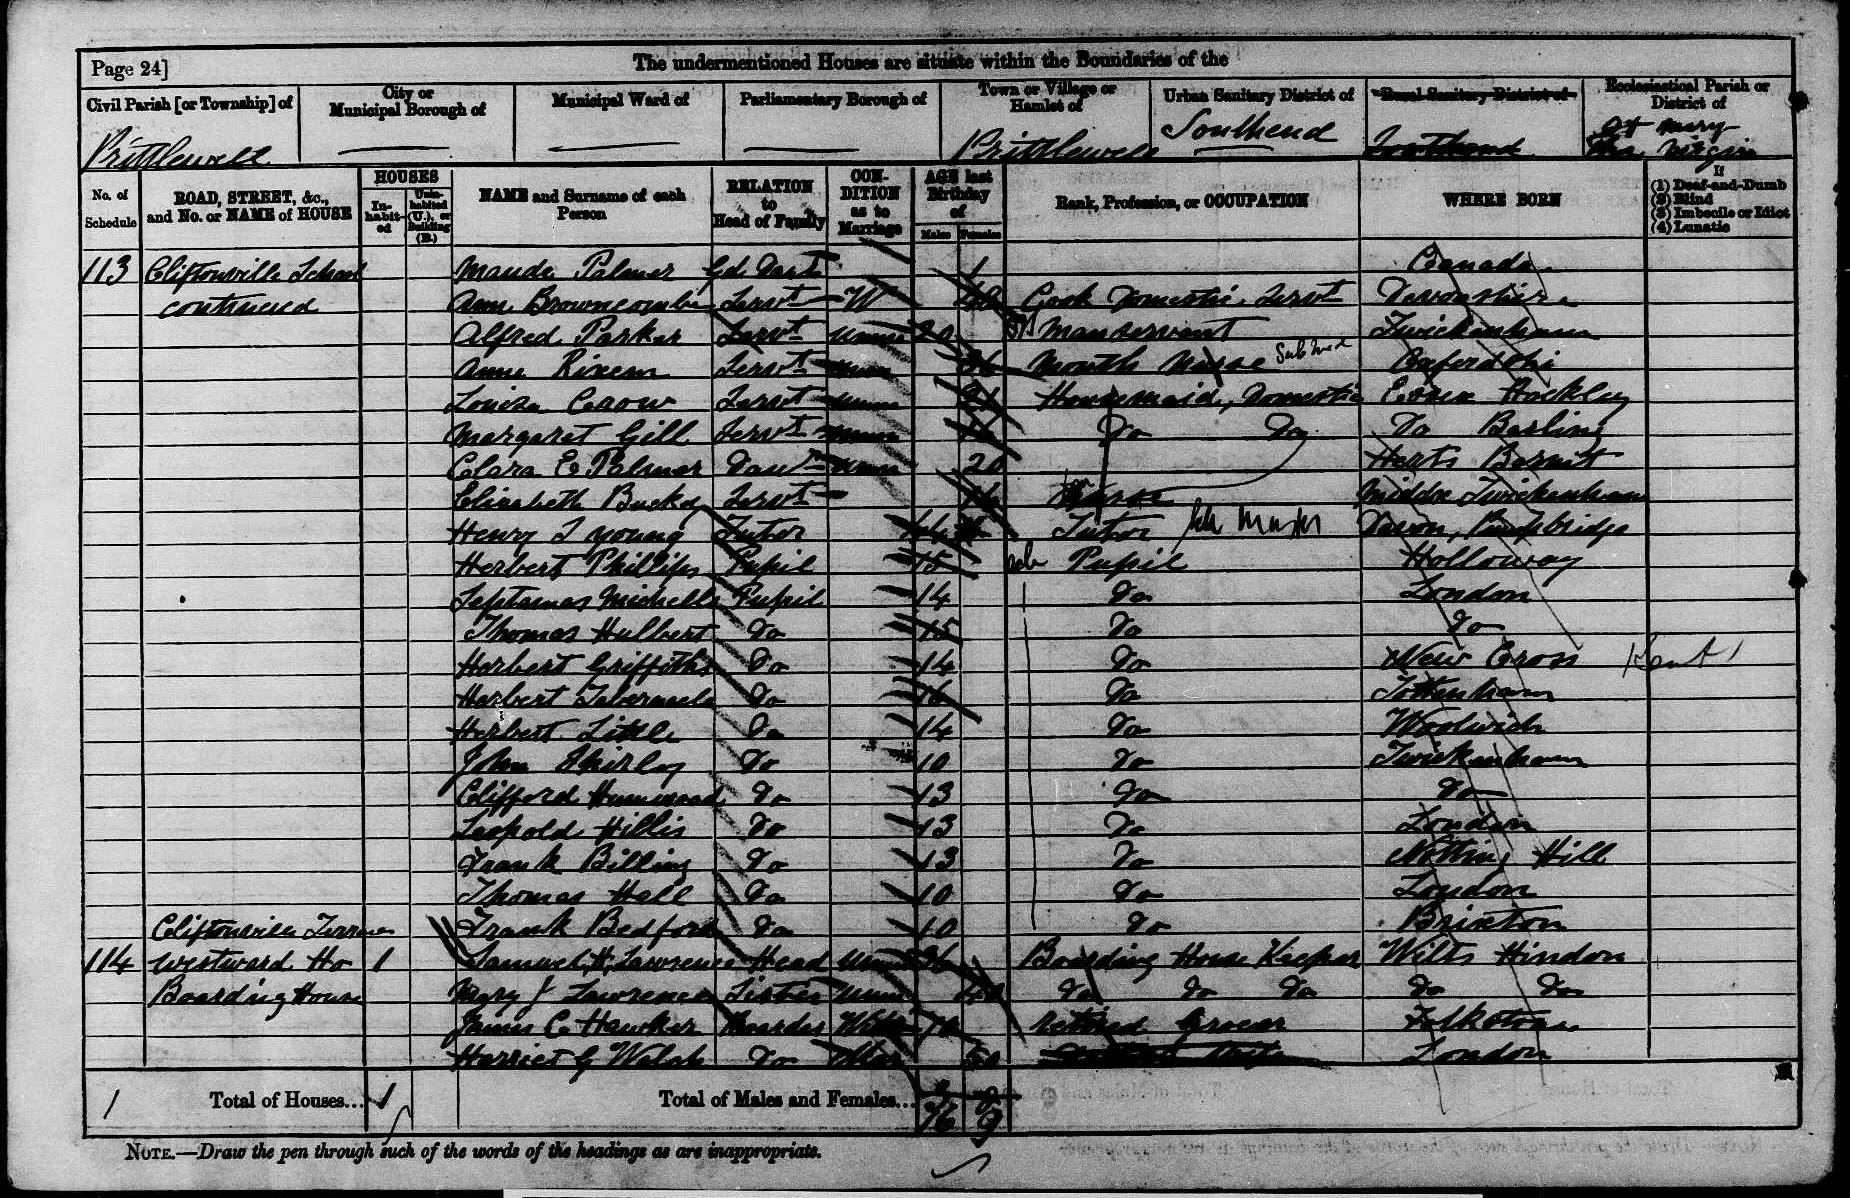 Page 24]
The undermentioned Houses are situate within the Boundaries of the
Civil Parish [or Township] of
City or Municipal Borough of
Municipal Ward of
Parliamentary Borough of
Town or Village or Hamlet of
Urban Sanitary District of
Rural Sanitary District of
Ecclesiastical Parish or District of
Prittlewell
Prittlewell
Southend
St Mary the Virgin
No. of Schedule
ROAD, STREET, &c., and No. or NAME of HOUSE
HOUSES
In-habit-ed
Unin-habited (U.), or Building (B.)
NAME and Surname of each Person
RELATION to Head of Family
CON-DITION as to Marriage
AGE last Birthday of
Males Females
Rank, Profession, or OCCUPATION
WHERE BORN
If (1) Deaf-and-Dumb (2) Blind (3) Imbecile or Idiot (4) Lunatic
113 Cliftonville School Maude Palmer Gd Daur 1 Canada
continued Ann Browncombe Servt W Cook Domestic Servt Devonshire
Alfred Parker Servt Unm 20 Manservant Twickenham
Annie Servt Unm 36 Month Nurse Sub Med Oxfordshi
Louiza Crow Servt Unm 21 Housemaid, Domestic Essex Hockley
Margaret Gill Servt Unm Do Do Do Barling
Clara E Palmer Daur Unm 20 Herts Barnet
Elizabeth Servt 16 Nurse Middx Twickenham
Henry J Young Tutor 44 Tutor Sch Mastr Devon,
Herbert Phillips Pupil 15 Sch Pupil Holloway
Septimus Michells Pupil 14 Do London
Thomas Hulbert Do 15 Do Do
Herbert Griffiths Do 14 Do New Cross Kent
Herbert Tabernacle Do 16 Do Tottenham
Herbert Little Do 14 Do Woolwich
John Shirley Do 10 Do Twickenham
Clifford Do 13 Do Do
Leopold Hillis Do 13 Do London
Frank Billing Do 13 Do Notting Hill
Thomas Hall Do 10 Do London
Cliftonville Terrace Frank Bedford Do 10 Do Brixton
114 Westward Ho 1 Samuel H Lawrence Head Unm 36 Boarding House Keeper Wilts Hindon
Boarding House Mary J Lawrence Sister Unm 40 Do Do Do Do Do
James C Hawker Boarder Widr retired Grocer Folkstone
Harriet G Walsh Do Mar 50 London
1 Total of Houses... 1
Total of Males and Females... 16 9
NOTE.—Draw the pen through such of the words of the headings as are inappropriate.